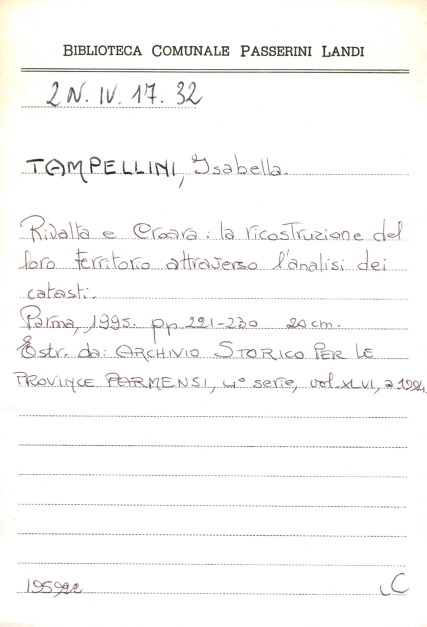 BIBLIOTECA COMUNALE PASSERINI LANDI
2 N. IV. 17. 32
TAMPELLINI, Isabella.
Rivalta e Croara: la ricostruzione del
loro territorio attraverso l'analisi dei
catasti.
Parma, 1995. pp. 221-230 20 cm.
Estr. da: ARCHIVIO STORICO PER LE
PROVINCE PARMENSI, 4° serie, vol. XLVI, a 1994.
195922
C